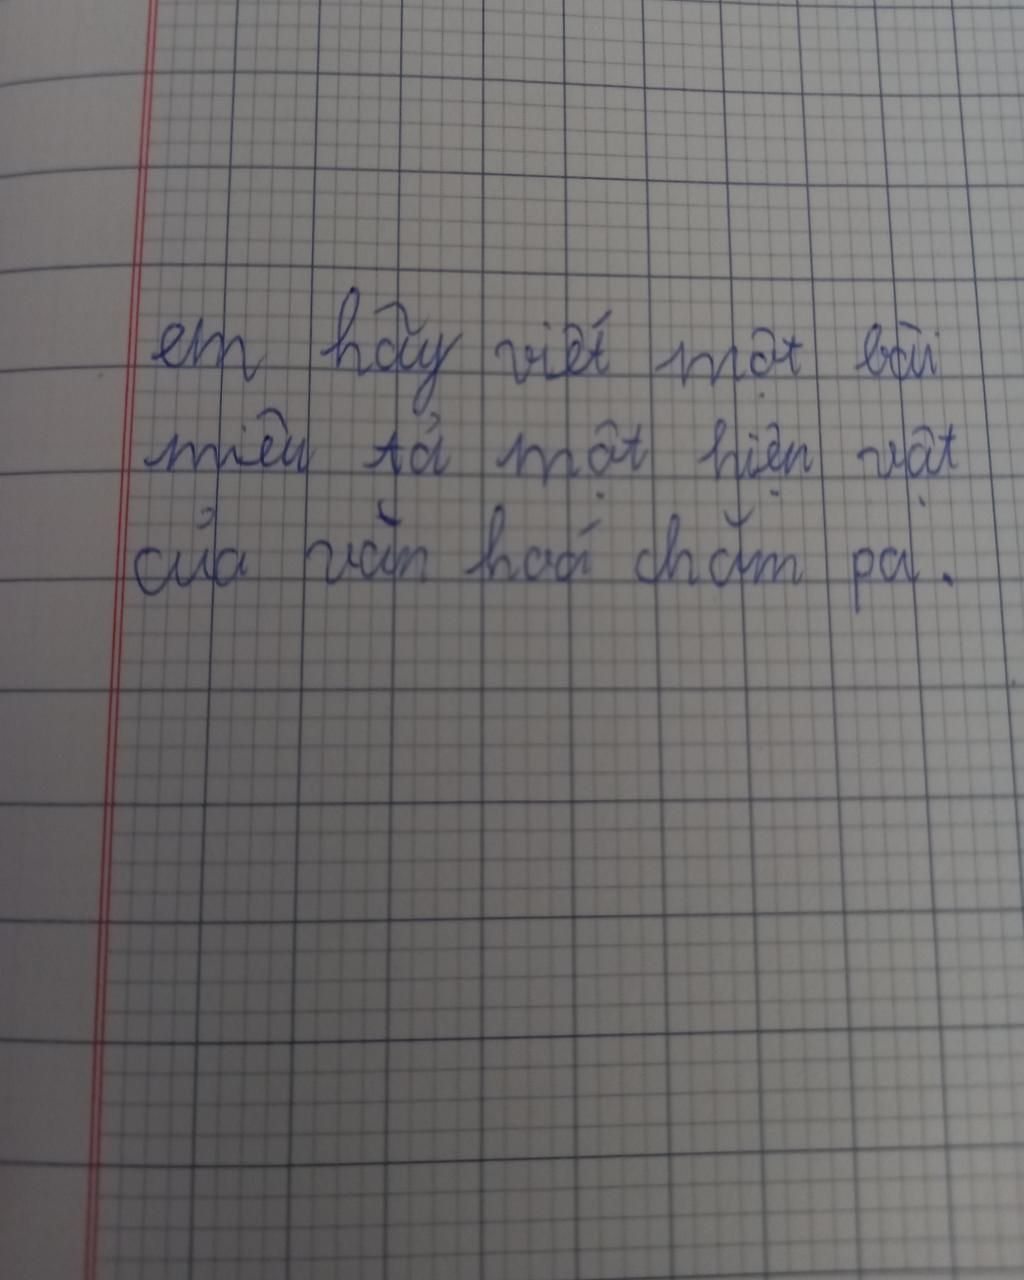 em hãy viết một bài
miêu tả một hiện vật
của văn hoá chăm pa.